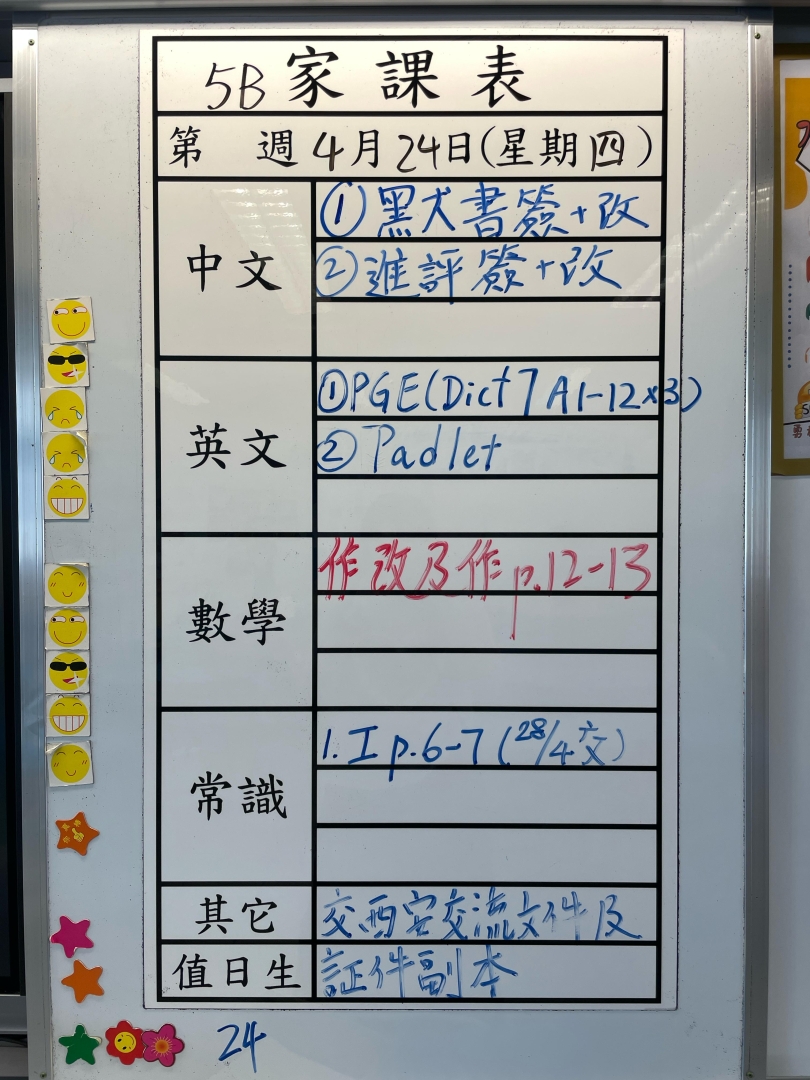 5B家課表
第 週 4月24日(星期四)
中文
①黑犬書簽+改
②進評簽+改
英文
①PGE(Dict 7 A1-12x3)
②Padlet
數學
作改及作p.12-13
常識
1. I p.6-7 (28/4交)
其它
交西安交流文件及
值日生
証件副本
24